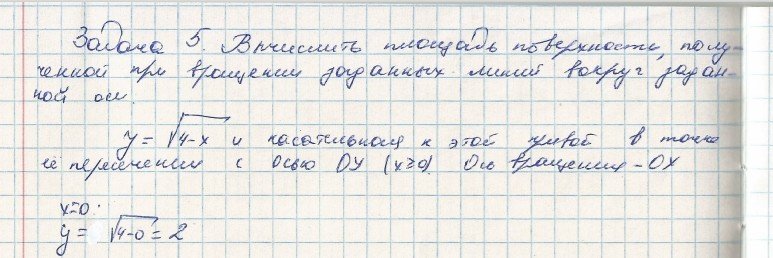 Задача 5. Вычислить площадь поверхности, полу-
ченной при вращении заданных линий вокруг задан-
ной оси.
y = √4-x и касательная к этой кривой в точке
её пересечения с осью OY (x≥0). Ось вращения - OX
x=0.
y = √4-0 = 2